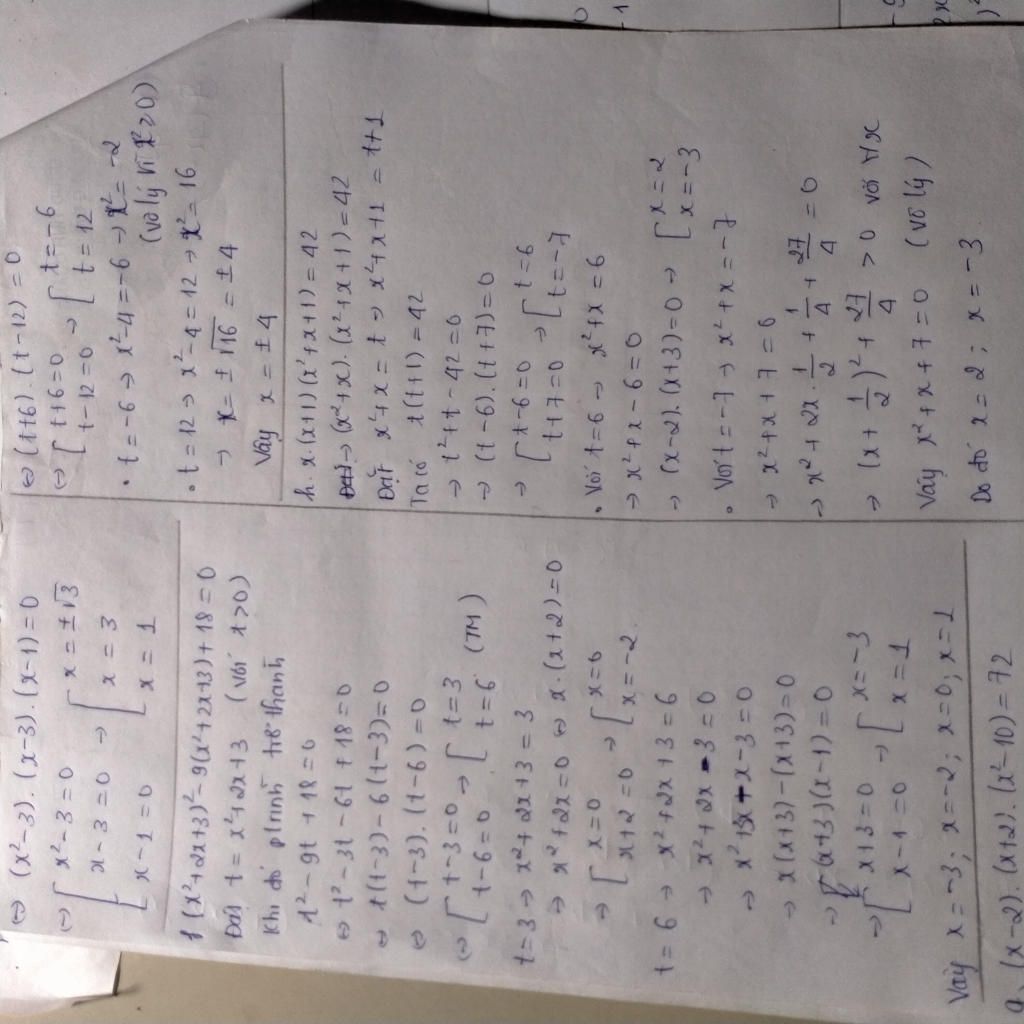 ⇔ (x²-3).(x-3).(x-1)=0
⇔ [ x²-3=0
x-3=0 → [ x=±√3
x=3
x-1=0
x=1
f (x²+2x+3)²-9(x²+2x+3)+18=0
Đặt t = x²+2x+3 (với t>0)
Khi đó p/trình trở thành
t²-9t+18=0
⇔ t²-3t-6t+18=0
⇔ t(t-3)-6(t-3)=0
⇔ (t-3).(t-6)=0
⇔ [ t-3=0 → [ t=3
t-6=0 t=6 (TM)
t=3 → x²+2x+3=3
→ x²+2x=0 ⇔ x.(x+2)=0
→ [ x=0 → [ x=0
x+2=0 x=-2.
t=6 → x²+2x+3=6
→ x²+2x-3=0
→ x²+3x-x-3=0
→ x(x+3)-(x+3)=0
→ (x+3)(x-1)=0
→ [ x+3=0 → [ x=-3
x-1=0 x=1
Vậy x=-3; x=-2; x=0; x=1
g, (x-2).(x+2).(x²-10)=72
⇔ (t+6).(t-12)=0
⇔ [ t+6=0 → [ t=-6
t-12=0 t=12
• t=-6 → x²-4=-6 → x²=-2
(vô lý vì x²≥0)
• t=12 → x²-4=12 → x²=16
→ x=±√16=±4
Vậy x=±4
h. x.(x+1)(x²+x+1)=42
→ (x²+x).(x²+x+1)=42
Đặt x²+x=t → x²+x+1=t+1
Ta có t(t+1)=42
→ t²+t-42=0
→ (t-6).(t+7)=0
→ [ t-6=0 → [ t=6
t+7=0 t=-7
• Với t=6 → x²+x=6
→ x²+x-6=0
→ (x-2).(x+3)=0 → [ x=2
x=-3
• Với t=-7 → x²+x=-7
→ x²+x+7=0
→ x²+2x.1/2+1/4+27/4=0
→ (x+1/2)²+27/4>0 với ∀x
Vậy x²+x+7=0 (vô lý)
Do đó x=2; x=-3